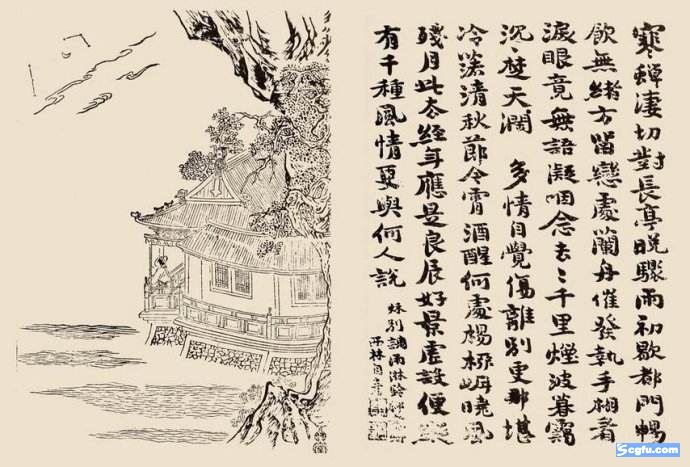 寒蟬淒切對長亭晚驟雨初歇都門暢
飲無緒方留戀處蘭舟催發執手相看
淚眼竟無語凝咽念去々千里煙波暮靄
沉々楚天闊 多情自覺傷離別更那堪
冷落清秋節今宵酒醒何處楊柳岸曉風
殘月此去經年應是良辰好景虛設便縱
有千種風情更與何人說
秋別 調雨淋鈴
Scgfu.com